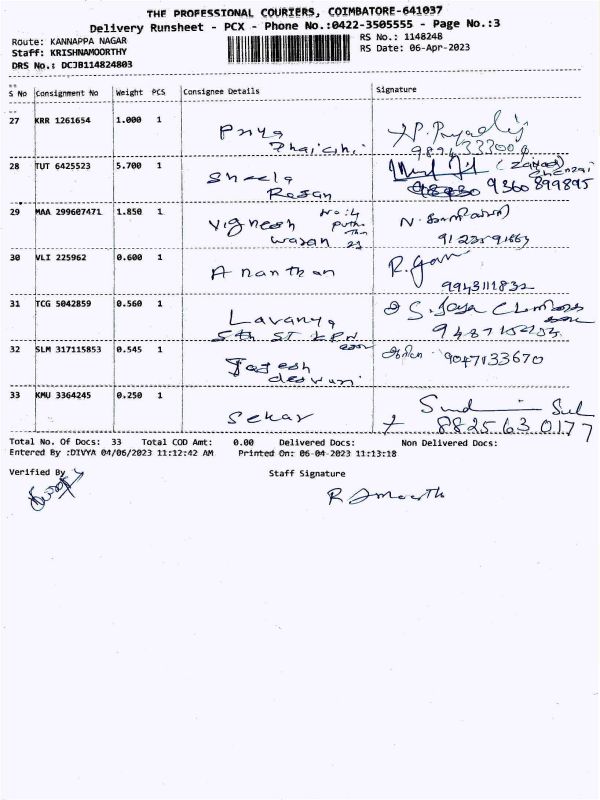 THE PROFESSIONAL COURIERS, COIMBATORE-641037
Delivery Runsheet - PCX - Phone No.:0422-3505555 - Page No.:3
Route: KANNAPPA NAGAR
RS No.: 1148248
Staff: KRISHNAMOORTHY
RS Date: 06-Apr-2023
DRS No.: DCJB114824803
S No Consignment No Weight PCS Consignee Details Signature
27 KRR 1261654 1.000 1
Priya
28 TUT 6425523 5.700 1
Sheela
Rajan
9360 899895
29 MAA 299607471 1.850 1
Vignesh No:4
30 VLI 225962 0.600 1
Ananthan
9943111832
31 TCG 5042859 0.560 1
Lavanya
5th ST KPN
32 SLM 317115853 0.545 1
9047133670
33 KMU 3364245 0.250 1
Sekar
8825630177
Total No. Of Docs: 33 Total COD Amt: 0.00 Delivered Docs: Non Delivered Docs:
Entered By :DIVYA 04/06/2023 11:12:42 AM Printed On: 06-04-2023 11:13:18
Verified By
Staff Signature